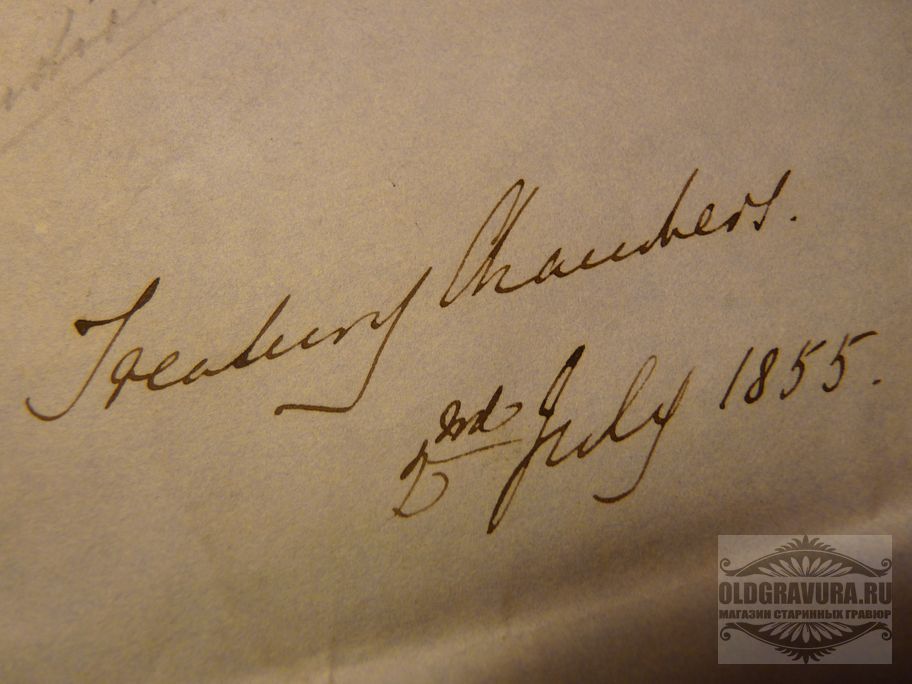 Treasury Chambers.
2nd July 1855.
OLDGRAVURA.RU
МАГАЗИН СТАРИННЫХ ГРАВЮР